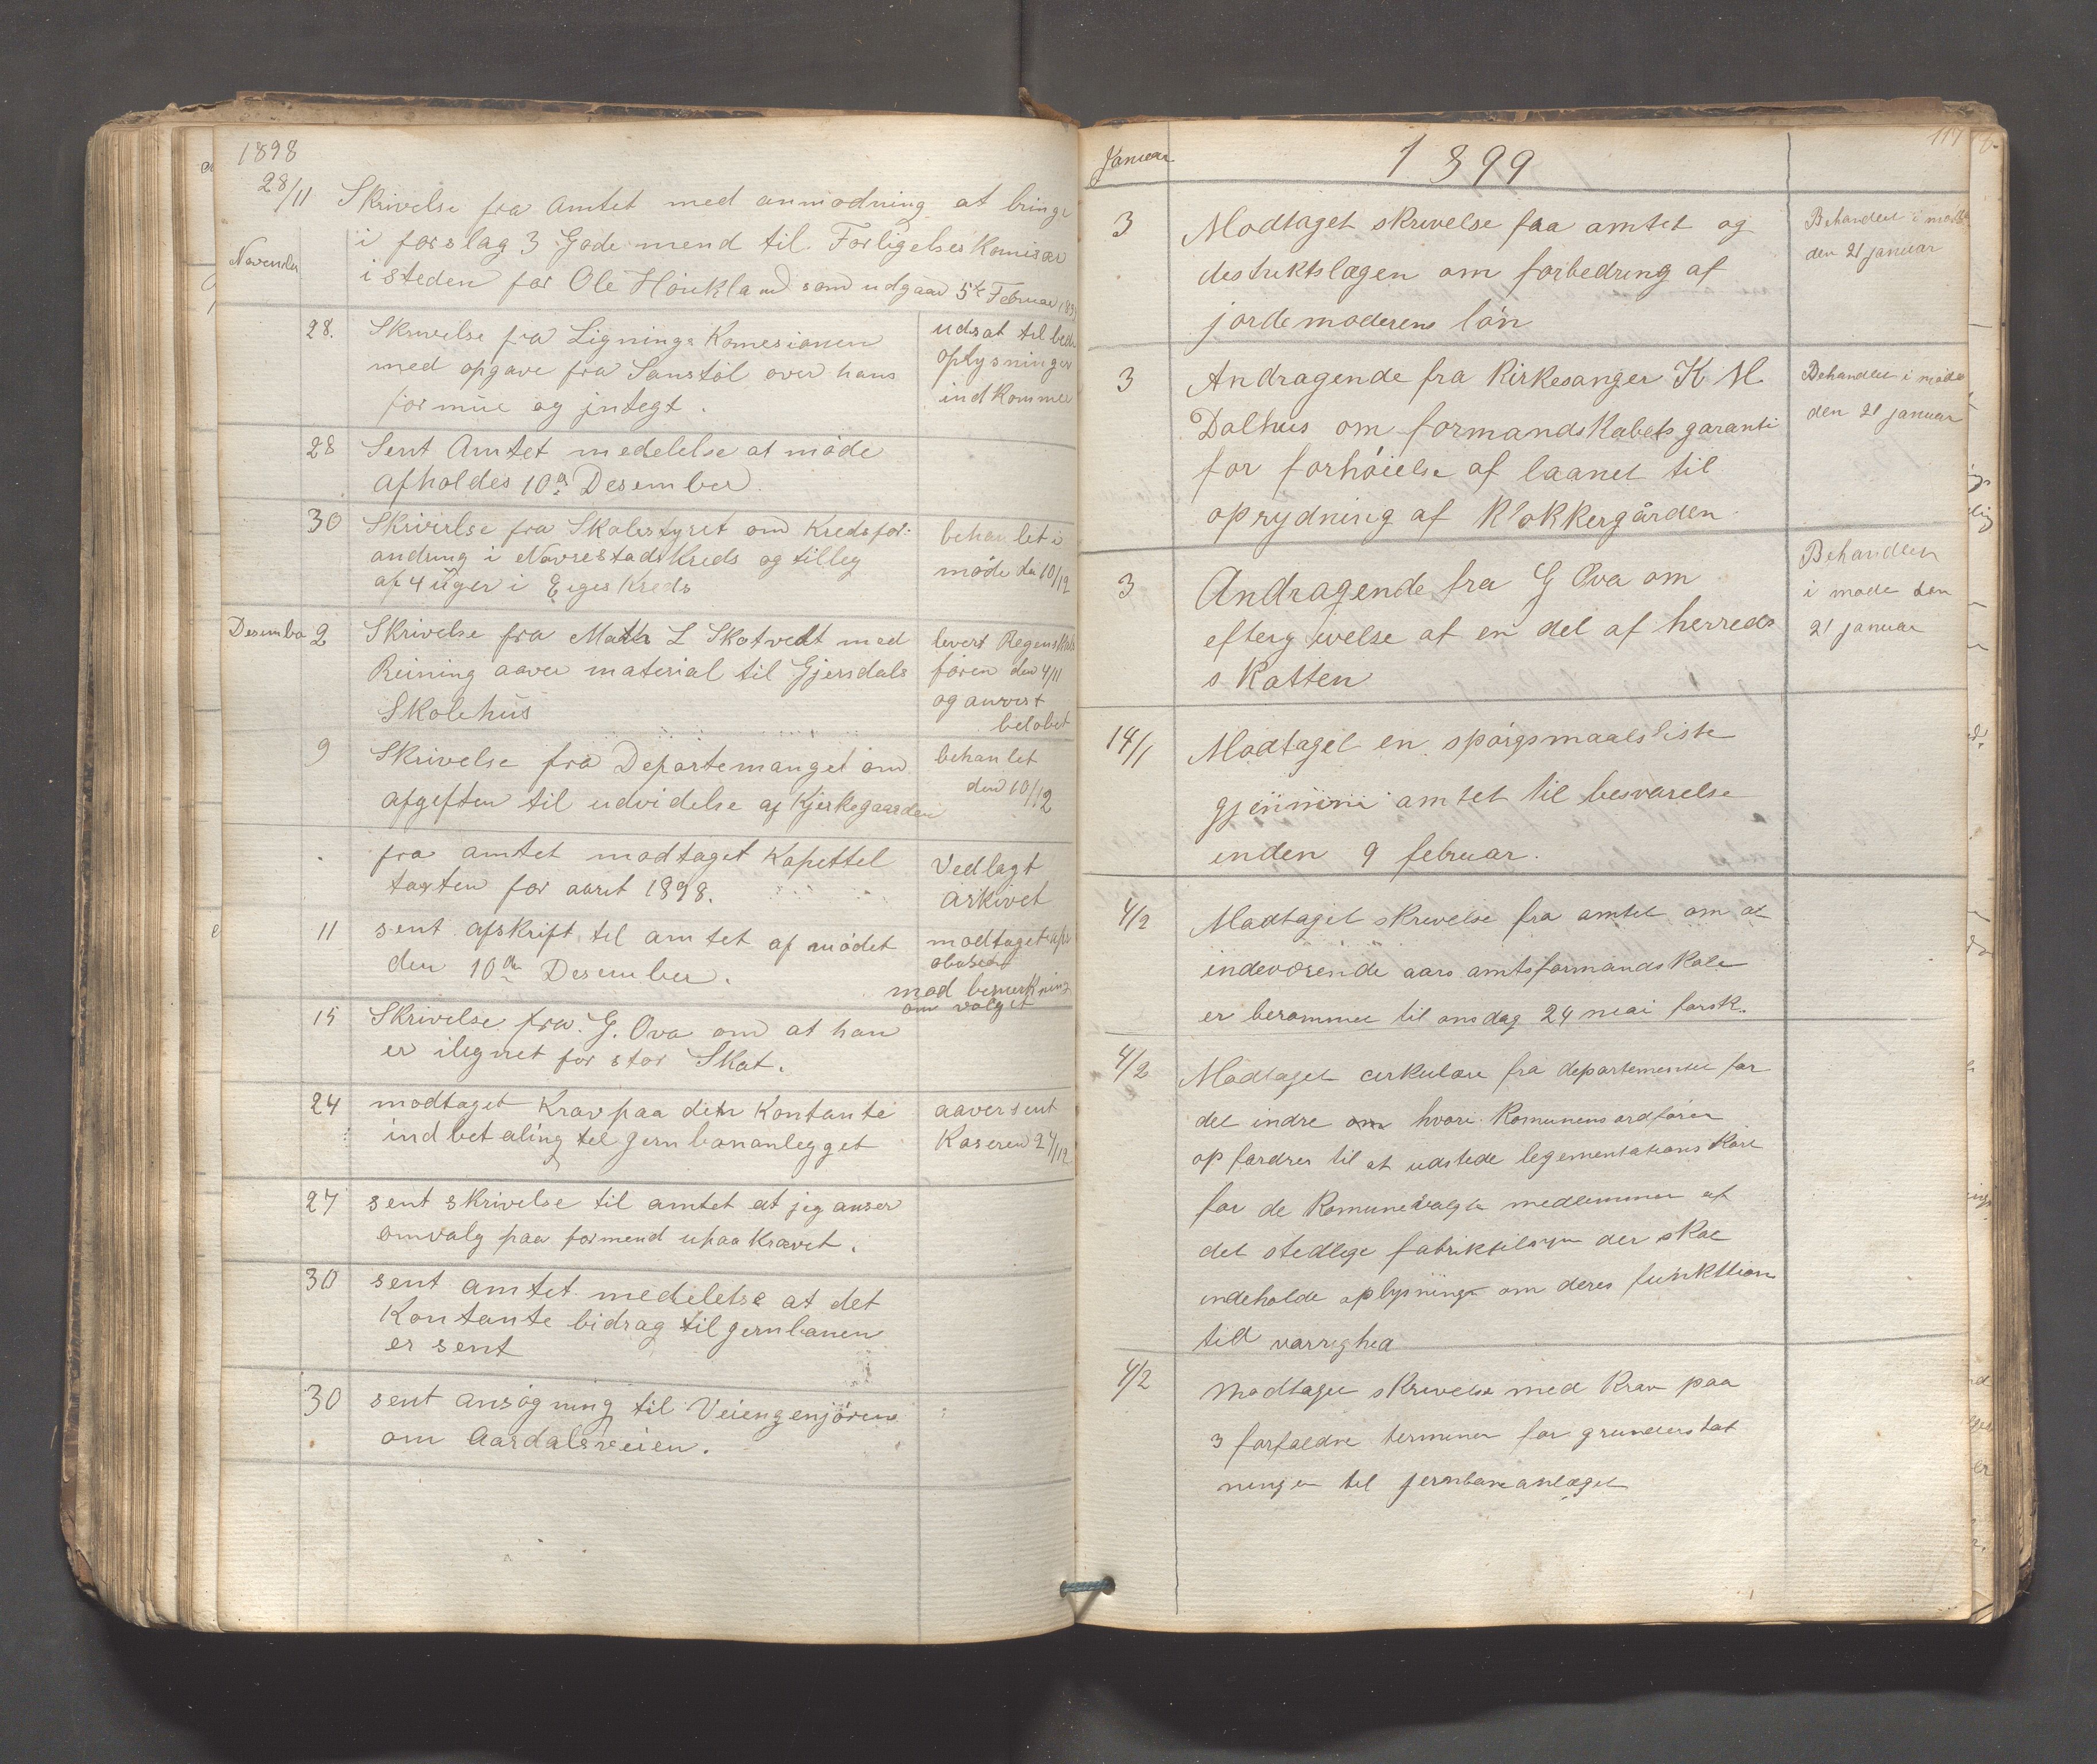 1898
28/11 Skrivelse fra Amtet med anmodning at bringe
November i forslag 3 Gode mend til Forligelses Komisær
i steden for Ole Houkland som udgaar 5te Februar
28. Skrivelse fra Lignings Komesionen
med opgave fra Sanstöl over hans
formue og integt.
udsat til
oplysninger
indkomme
28 Sent Amtet medelelse at möde
afholdes 10de Desember
30 Skrivelse fra Skolestyret om Kredsfor:
andring i Navrestad Kreds og tilleg
af 4 uger i Eiges Kreds
behanlet i
möde de 10/12
Desember 2 Skrivelse fra Math L Skotvedt med
Reining aaver material til Gjersdals
Skolehus
levert Regenskabs
foren den 4/11
og anvist
belobet
9 Skrivelse fra Departemanget om
afgeften til udvidelse af Kjerkegaarden
behanlet
den 10/12
fra amtet modtaget Kapettel
taxten for aaret 1898.
Vedlagt
arkivet
11 sent afskrift til amtet af mödet
den 10de Desember.
modtaget
mod bemerkning
om valget
15 Skrivelse fra G. Ova om at han
er ilignet for stor Skat.
24 modtaget Krav paa den Kontante
indbetaling tel gernbananlegget
aaversent
Kaseren 24/12
27 sent skrivelse til amtet at jeg anser
omvalg paa formend upaakrævet.
30 sent amtet medelelse at det
Kontante bidrag til gernbanen
er sent
30 sent ansögning til Veiengenjören
om Aasdalsveien.
Januar 1899 117
3 Modtaget skrivelse fra amtet og
destriktslægen om forbedring af
jordemoderens lön
Behandlet i möde
den 21 januar
3 Andragende fra Kirkesanger K M
Dalhus om formandskabets garanti
for forhöielse af laanet til
oprydning af Klokkergården
Behandlet i möde
den 21 januar
3 Andragende fra G Ova om
eftergivelse af en del af herreds
skatten
Behandlet
i møde den
21 januar
14/1 Modtaget en spörgsmaalsliste
gjennem amtet til besvarelse
inden 9 februar.
4/2 Modtaget skrivelse fra amtet om at
indeværende aars amtsformandskab
er berammet til onsdag 24 mai förstk.
4/2 Modtaget cirkulære fra departementet for
det indre om hvori Komunens ordförer
opfordres til at udstede legementations Kort
for de Komunevalgte medlemmer af
det stedlige fabriktilsyn der skal
indeholde oplysninger om deres funktions
tid varrighed
4/2 Modtaget skrivelse med Krav paa
3 forfaldne terminer for grunderstat
ningen til jernbaneanlæget